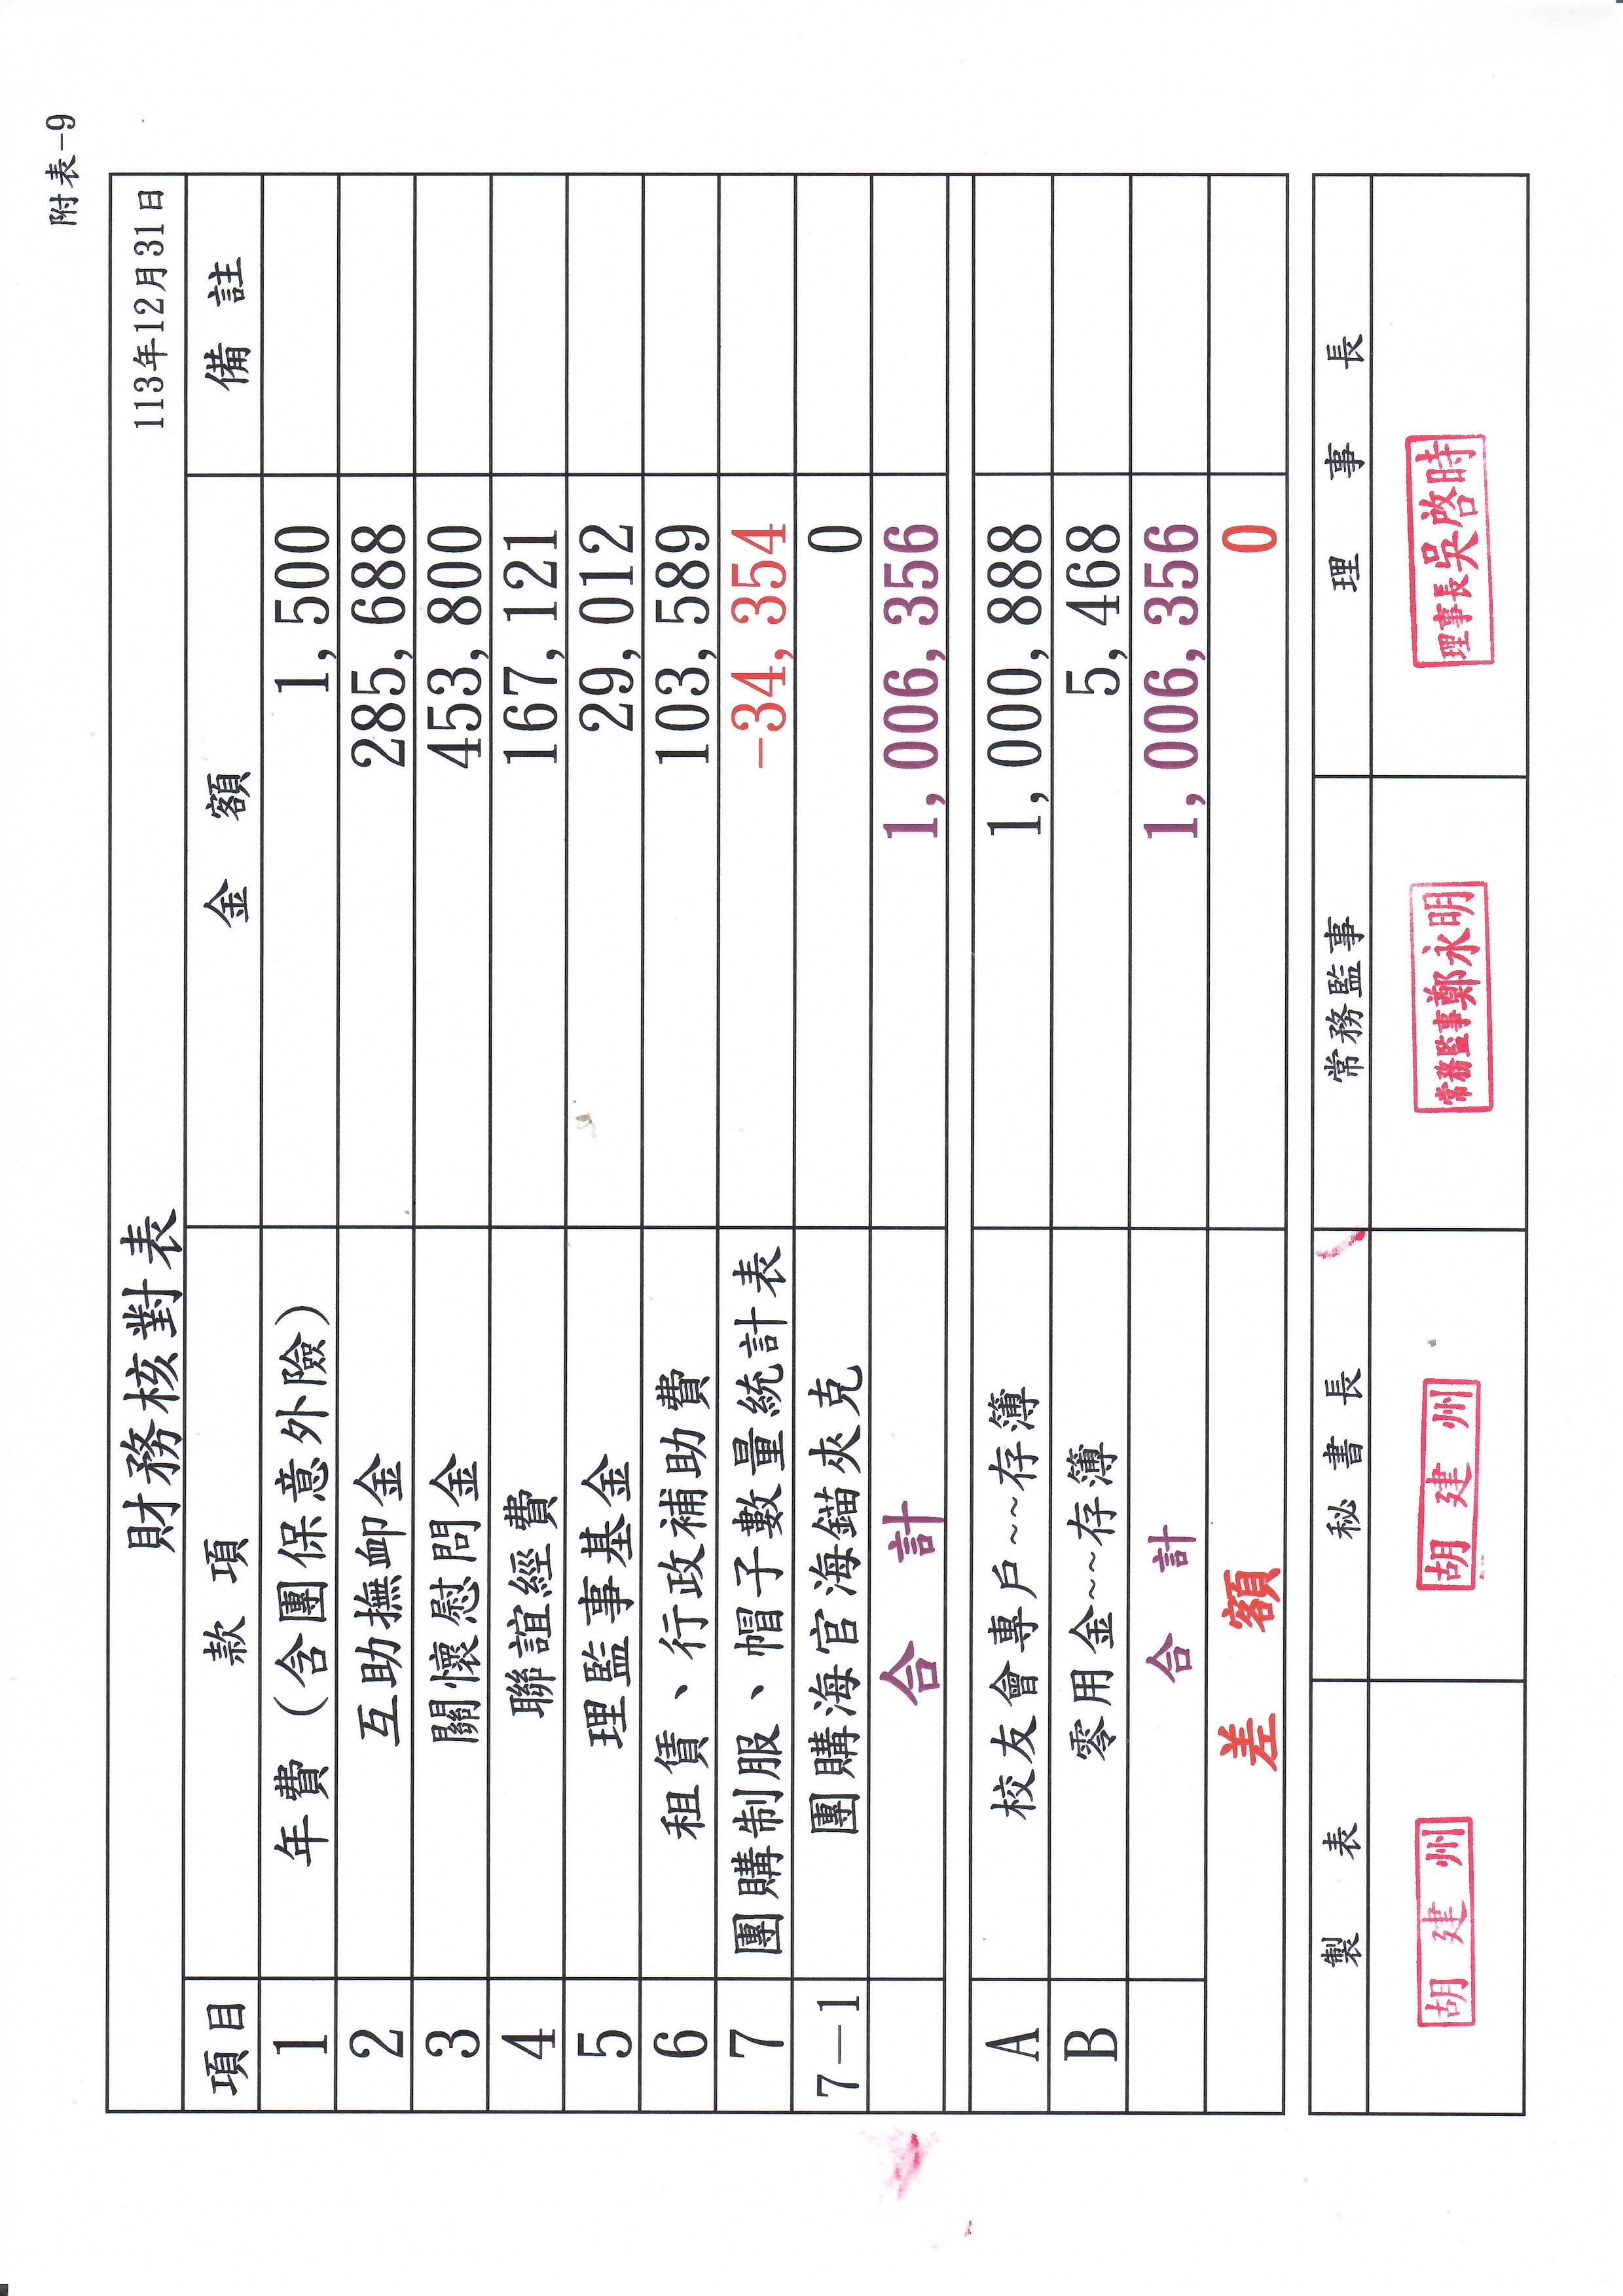 附表-9
財務核對表 113年12月31日
項目 款項 金額 備註
1 年費（含團保意外險） 1,500
2 互助撫卹金 285,688
3 關懷慰問金 453,800
4 聯誼經費 167,121
5 理監事基金 29,012
6 租賃、行政補助費 103,589
7 團購制服、帽子數量統計表 -34,354
7-1 團購海官海錨夾克 0
合計 1,006,356
A 校友會專戶~~存簿 1,000,888
B 零用金~~~存簿 5,468
合計 1,006,356
差額 0
製表 秘書長 常務監事 理事長
胡建州 胡建州 常務監事鄭永明 理事長吳啓時